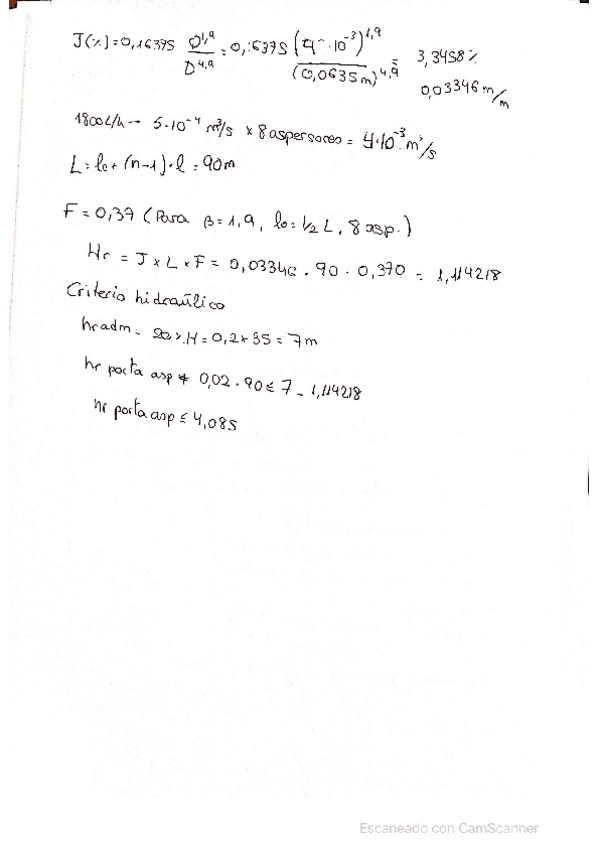 J(%)=0,16375 Q^1,9 / D^4,9 = 0,1637S (4·10^-3)^1,9 / (0,0635m)^4,9 = 3,3458%
0,03346 m/m
1800L/h → 5·10^-4 m³/s × 8 aspersores = 4·10^-3 m³/s
L = lo + (n-1)·l = 90m
F = 0,37 (Para β=1,9, lo=1/2 L, 8 asp.)
Hr = J × L × F = 0,03346 · 90 · 0,370 = 1,114218
Criterio hidraúlico
hr adm = 20%·H = 0,2*35 = 7m
hr porta asp + 0,02·90 ≤ 7 - 1,114218
hr porta asp ≤ 4,085
Escaneado con CamScanner